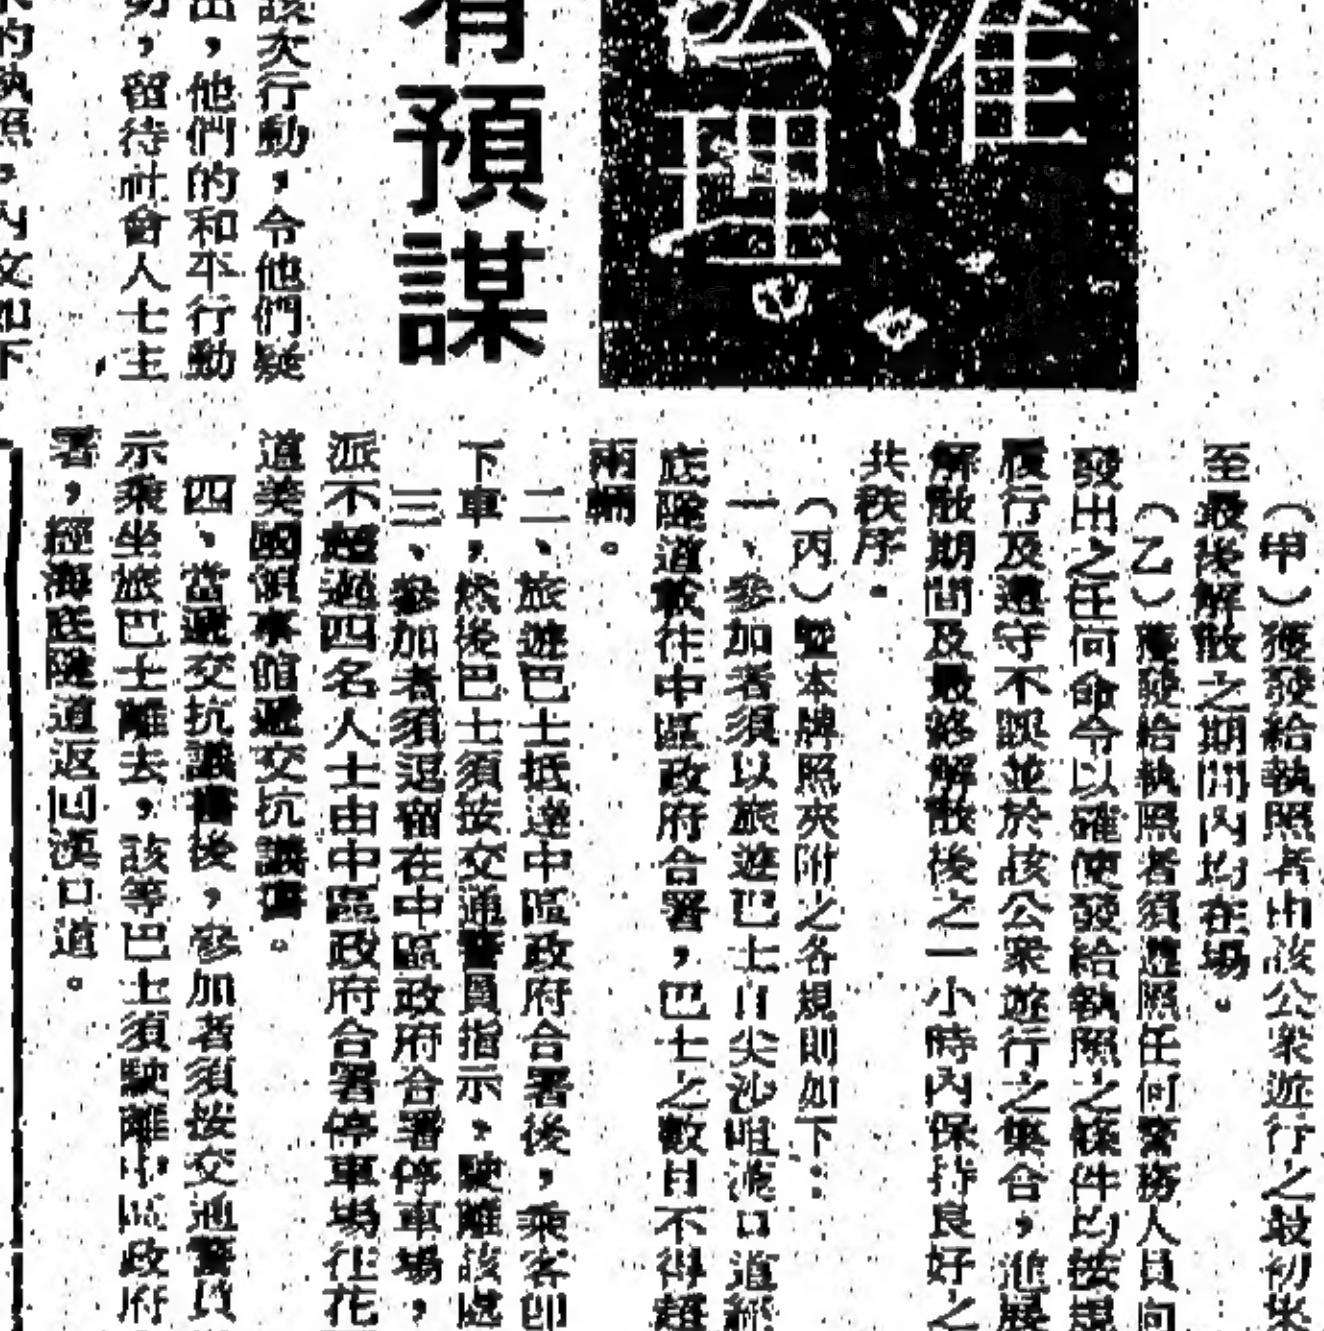 准
理
有預謀
該次行動，令他們疑
出，他們的和平行動
切，留待社會人士主
的執照，內文如下
（甲）獲發給執照者由該公衆遊行之最初集
至最後解散之期間內均在場。
（乙）獲發給執照者須遵照任何警務人員向
發出之任何命令以確使發給執照之條件均按規
履行及遵守不誤並於該公衆遊行之集合，進展
解散期間及最終解散後之一小時內保持良好之
共秩序。
（丙）暨本牌照夾附之各規則如下：
一、參加者須以旅遊巴士由尖沙咀漆口道經
底隧道載往中區政府合署，巴士之數目不得超
兩輛。
二、旅遊巴士抵達中區政府合署後，乘客即
下車，然後巴士須按交通警員指示，駛離該處
三、參加者須逗留在中區政府合署停車場，
派不超過四名人士由中區政府合署停車場往花
道美國領事館遞交抗議書。
四、當遞交抗議書後，參加者須按交通警員
示乘坐旅巴士離去，該等巴士須駛離中區政府
署，經海底隧道返回漢口道。